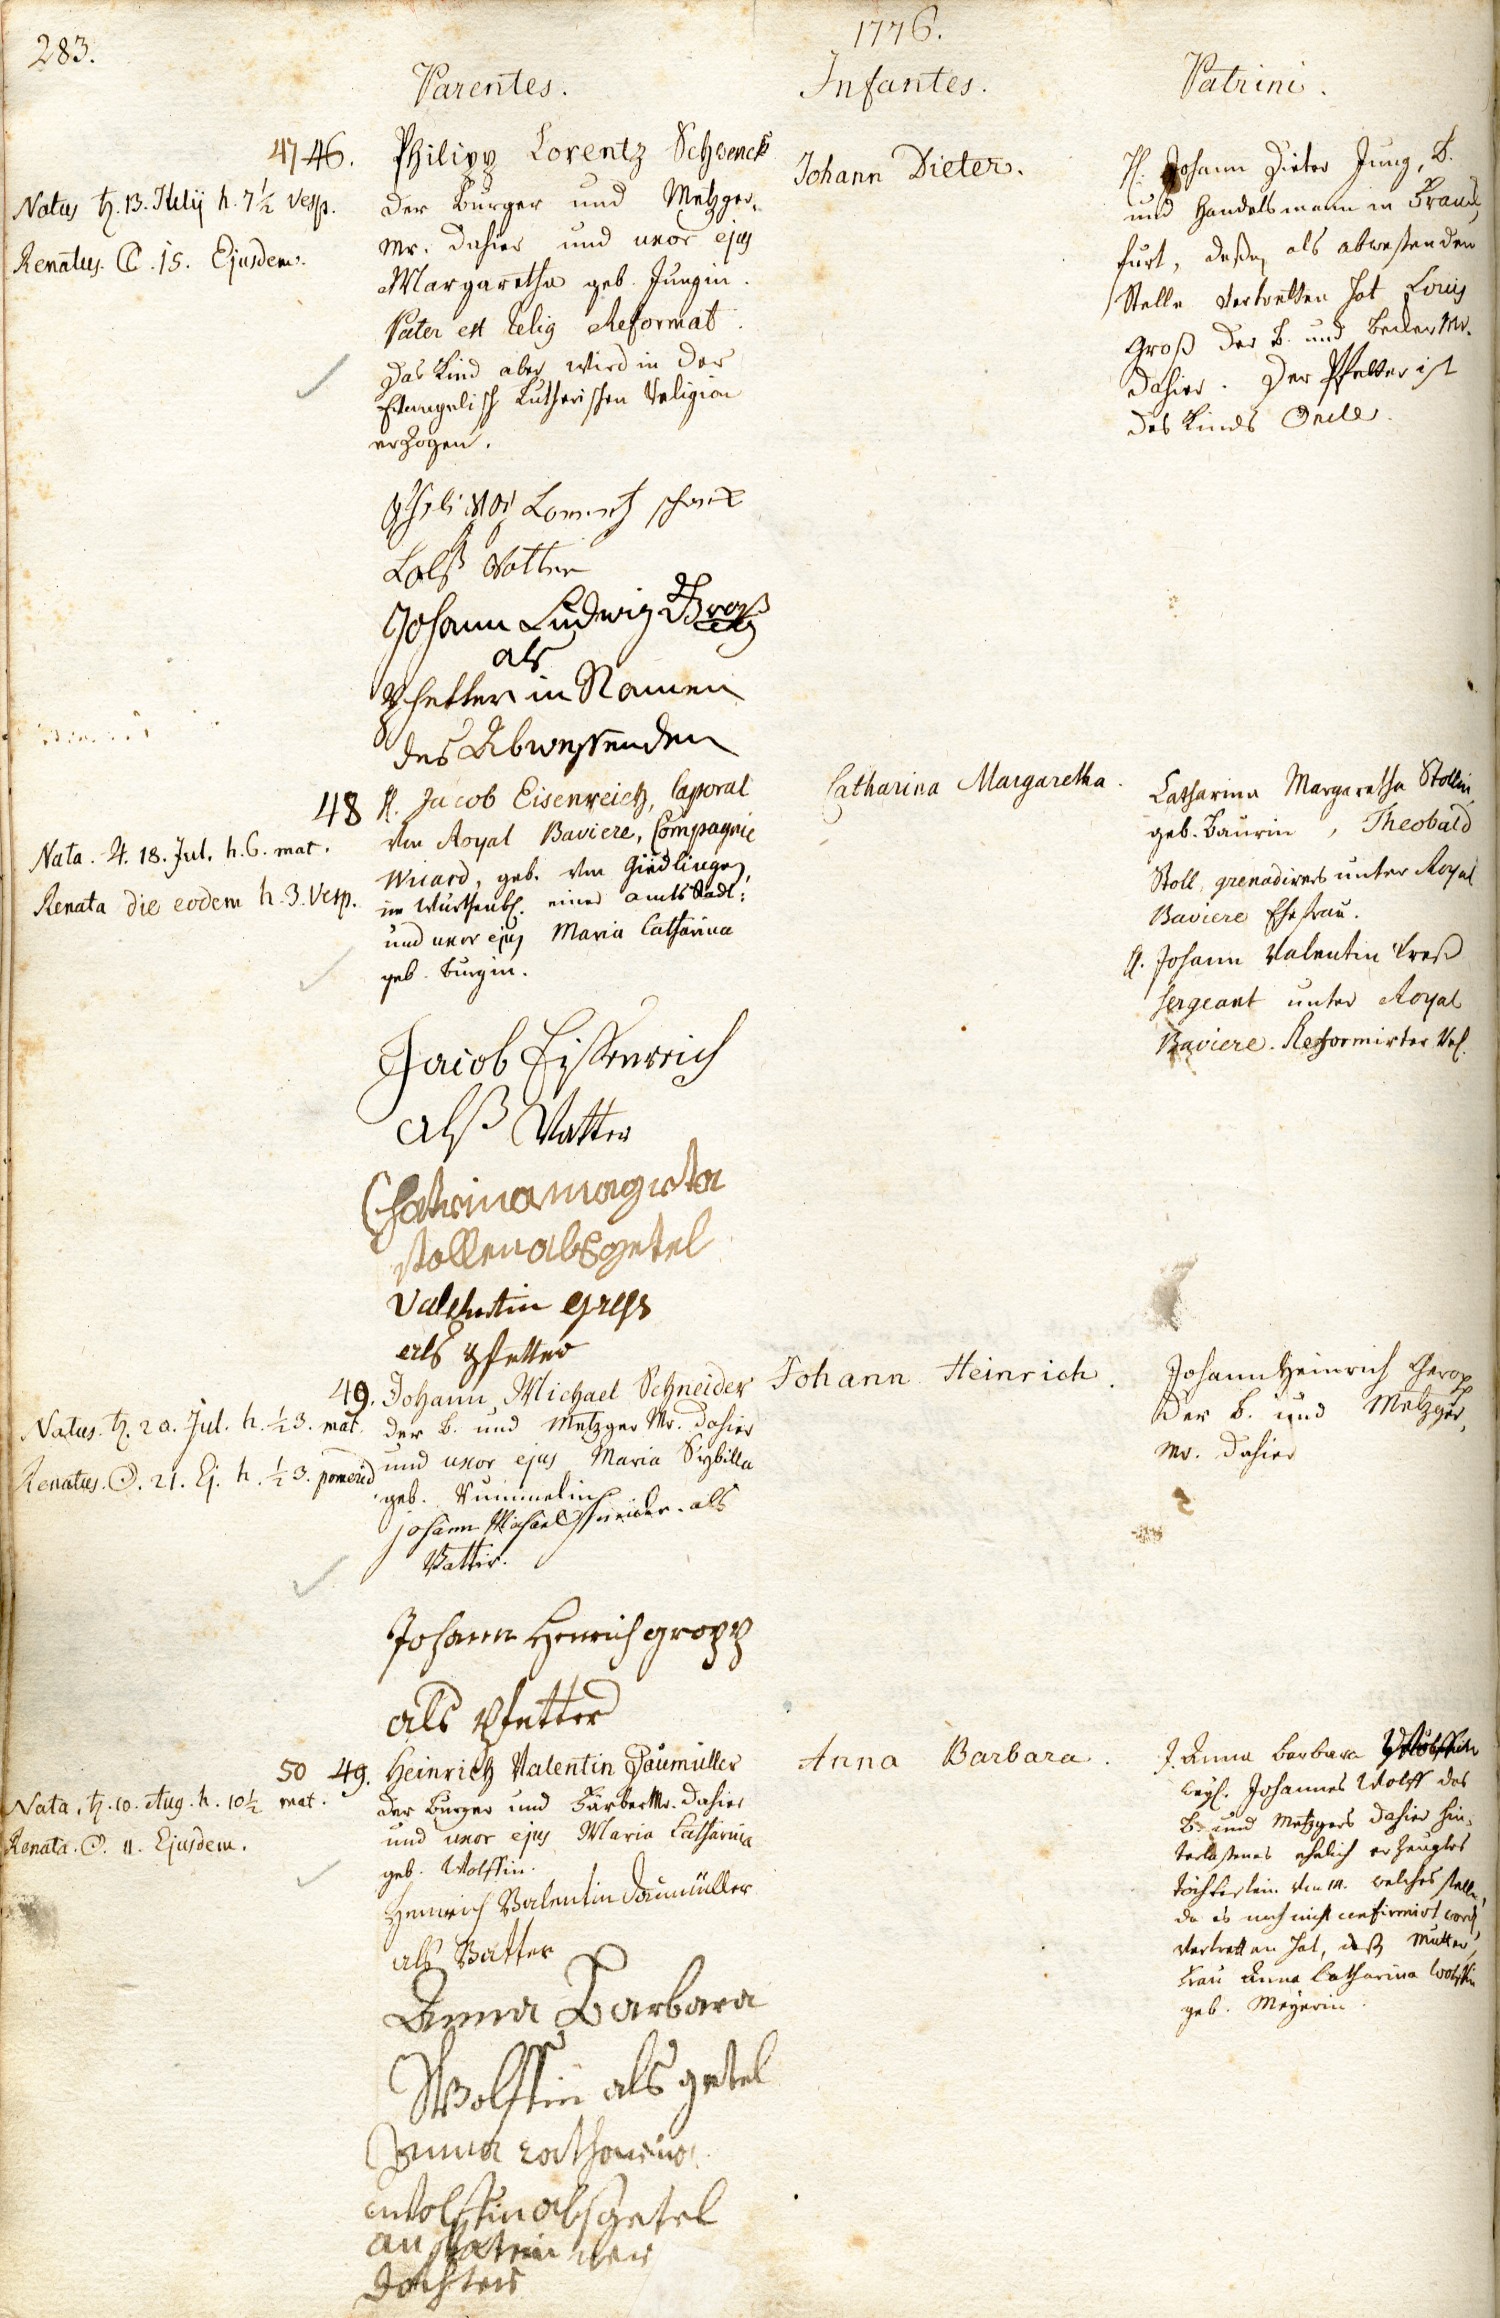 283.
1776.
Parentes.
Infantes.
Patrini.
47 46.
Natus ♄. 13. Julij h. 7 1/2 Vesp.
Renatus. ☾. 15. Ejusdem.
Philipp Lorentz Schwenck
der Burger und Metzger,
Mr. dahier und uxor ejus
Margaretha geb. Jungin.
Pater est Relig Reformat.
das Kind aber wird in der
Evangelisch Lutherischen Religion
erzogen.
Lorentz
Vatter
Johann Ludwig Groß
als
Pfetter in Namen
des Abwessenden
Johann Dieter.
H. Johann Dieter Jung, B.
und Handelsmann in Franck
furt, deßen als abweßenden
Stelle vertretten hat Louis
Groß der B. und Becker Mr.
dahier. Der Pfetter ist
des Kinds Oncle.
48
Nata. ♃. 18. Jul. h. 6. mat.
Renata die eodem h. 3. Vesp.
H. Jacob Eisenreich, Caporal
von Royal Baviere, Compagnie
Wicard, geb. von Giedlingen,
im Würtenb. einer Amts Stadt:
und uxor ejus Maria Catharina
geb. Burgin.
Jacob Eissenreich
alß Vatter
Chatrina magreta
stollen als getel
Valentin
als Pfetter
Catharina Margaretha.
Catharina Margaretha Stollin,
geb. Baurin, Theobald
Stoll, grenadirers unter Royal
Baviere Ehefrau.
H. Johann Valentin Kreß
Sergeant unter Royal
Baviere. Reformirter Rel.
49.
Natus. ♄. 20. Jul. h. 1/2 3. mat.
Renatus. ☉. 21. Ej. h. 1/2 3. pomerid.
Johann Michael Schneider
der B. und Metzger Mr. dahier
und uxor ejus Maria Sybilla
geb. Kummelin
Johann Michael Schneider. als
Vatter.
Johann Henrich gropp
als Pfetter
Johann Heinrich.
Johann Heinrich Gropp
der B. und Metzger,
Mr. dahier
50 49.
Nata. ♄. 10. Aug. h. 10 1/2 mat.
Renata. ☉. 11. Ejusdem.
Heinrich Valentin Daumüller
der Burger und Färber Mr. dahier
und uxor ejus Maria Catharina
geb. Wolffin.
Henrich Valentin Daumüller
als Vatter
Anna Barbara
Wolffin als getel
Anna Catharina
wolffin als getel
an statt meiner
Dochter
Anna Barbara.
J. Anna Barbara Wolffin
weyl. Johannes Wolff des
B. und Metzgers dahier hin-
terlaßenes ehelich erzeugtes
Töchterlein von 14. welches Stelle,
da es noch nicht confirmirt word,
vertretten hat, deß Mutter,
Frau Anna Catharina Wolffin
geb. Meyerin.